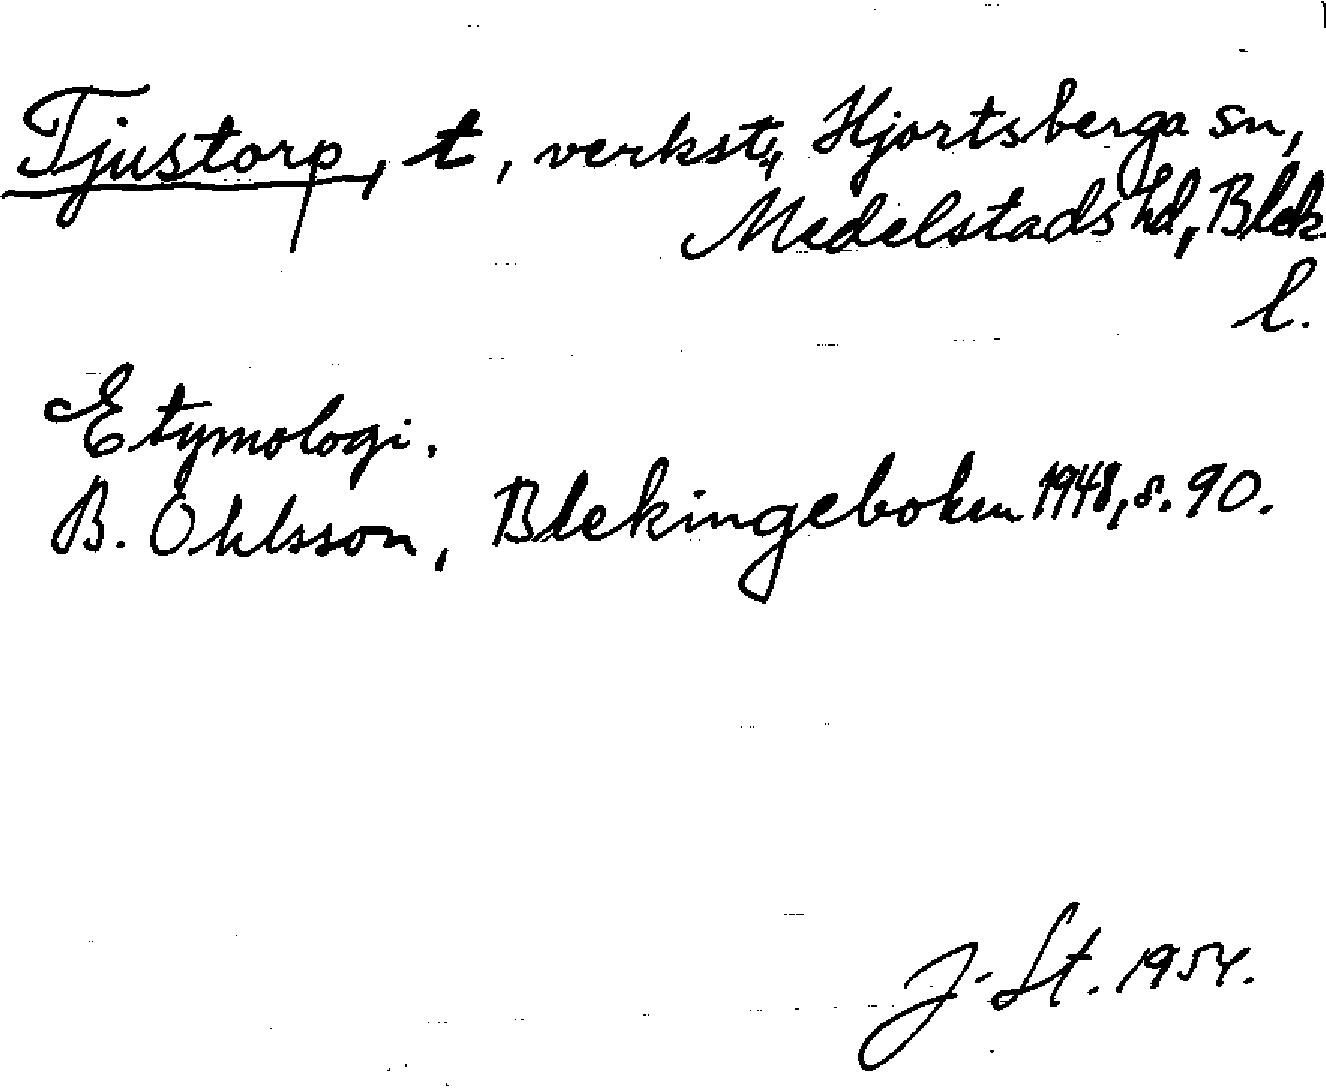 Tjustorp, t, verkst., Hjortsberga sn,
Medelstads hd, Blek.
l.
Etymologi.
B. Ohlsson, Blekingeboken 1948, s. 90.
J. St. 1954.